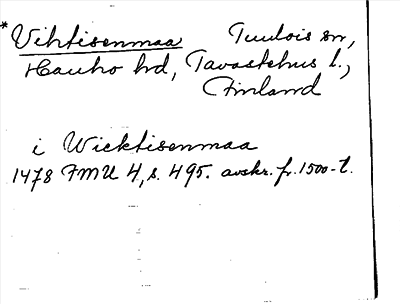 *Vihtisenmaa Tuulois sn,
Hauho hd, Tavastehus l.,
Finland
i Wicktisenmaa
1478 FMU 4, s. 495. avskr. fr. 1500-t.